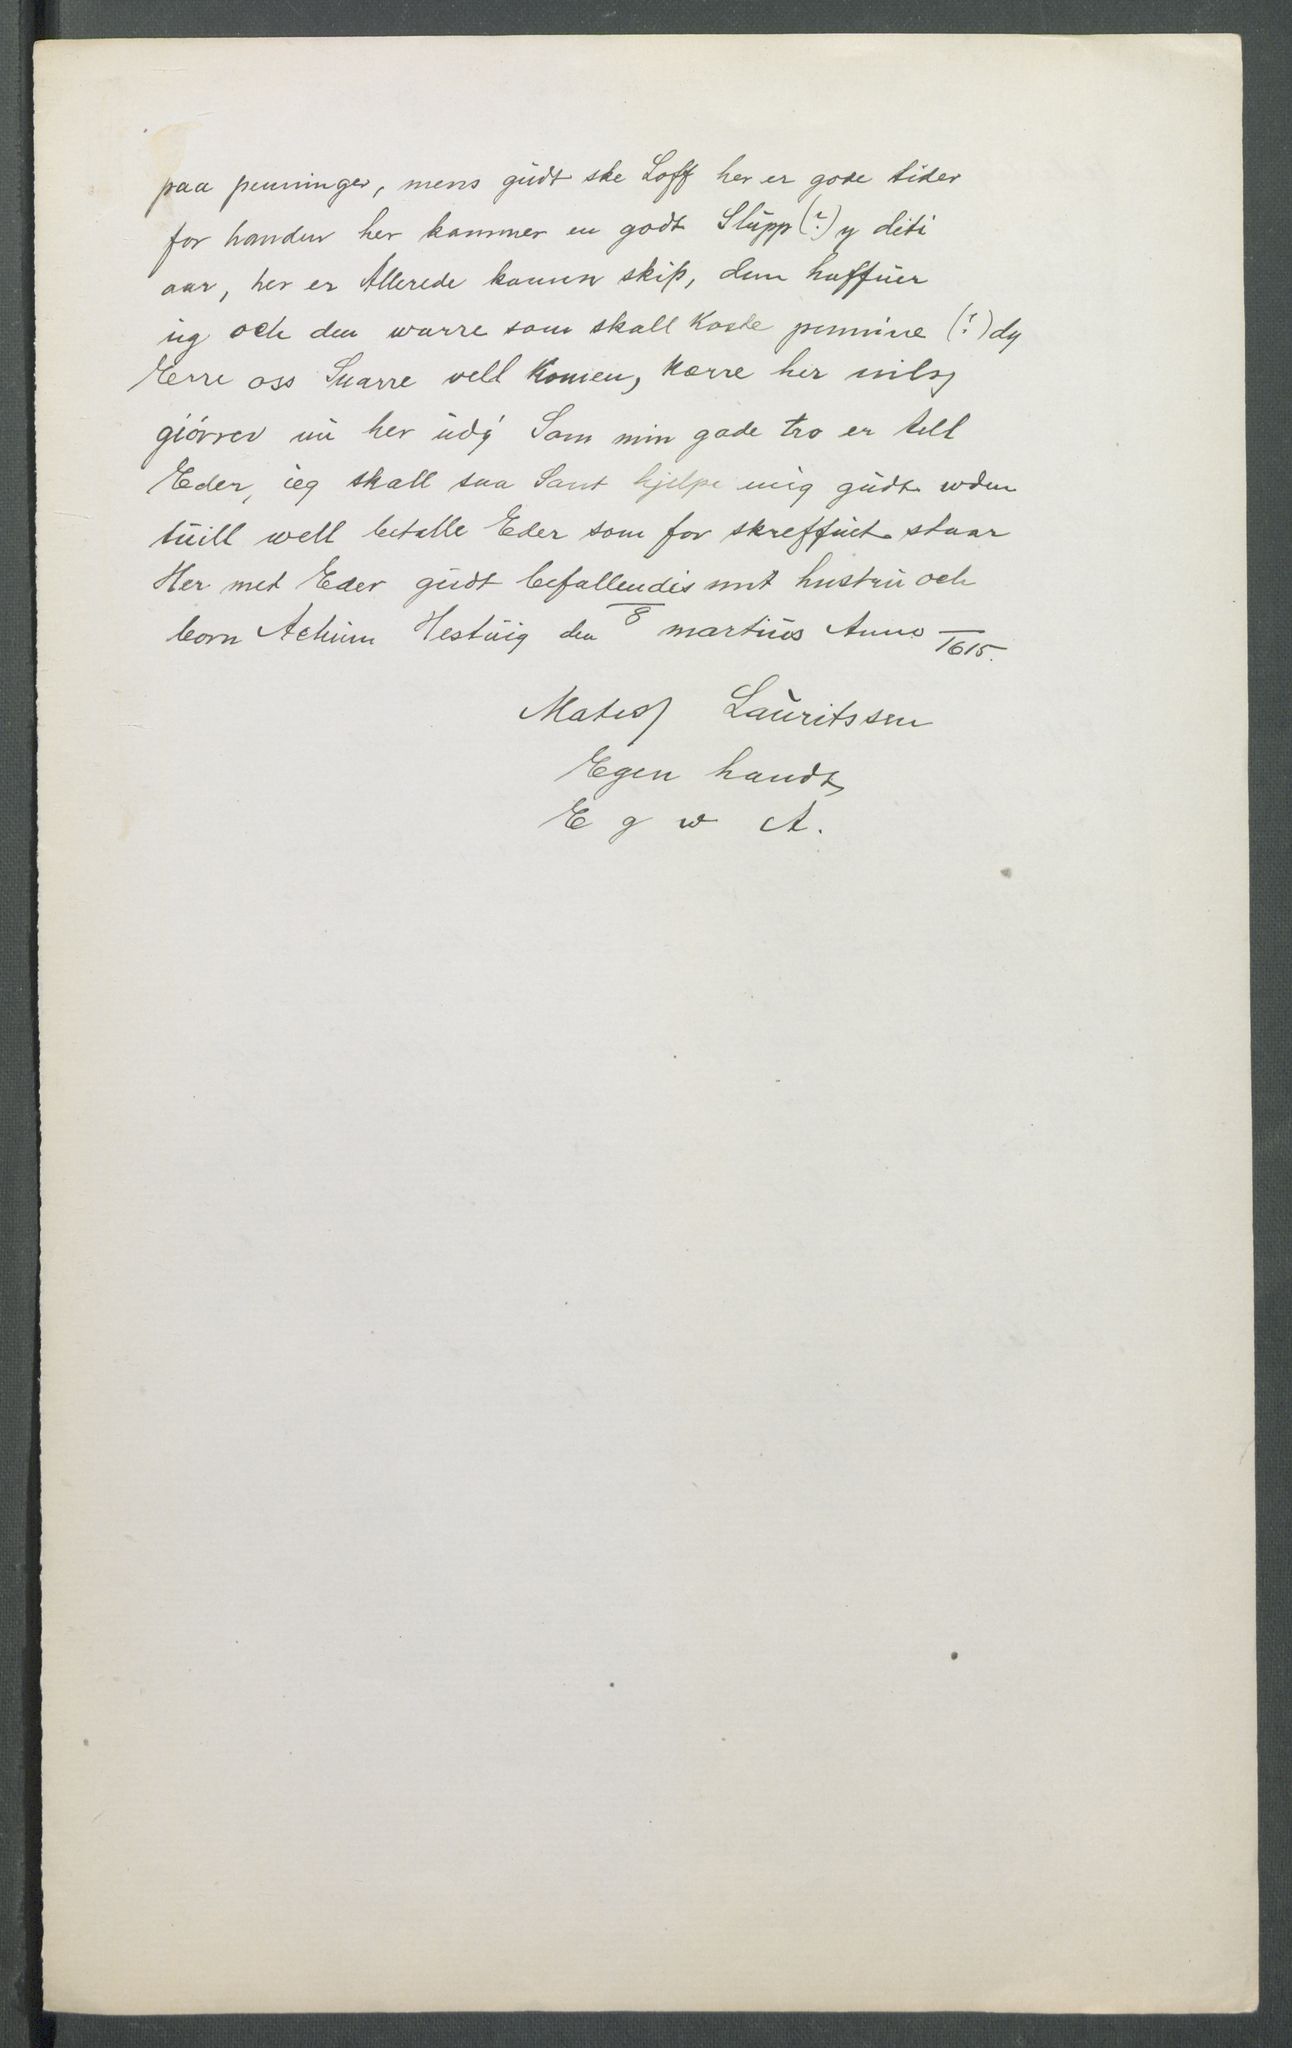 paa penninger, mens gudt ske Loff her er gode tider
for handen her kammer en godt Slupp (?) y diti
aar, her er Allerede kamen skip, dem haffuer
ieg och den warre som skall Koste pennine (?) dy
Erre oss Suarre vell Komen, Kærre her nils
giörrer nu her udÿ Som min gade tro er till
Eder, ieg skall saa Sant hjelpe mig gudt wden
tuill well betalle Eder som for skreffuet staar
Her met Eder gudt befallendis mit hustru och
born Actum Hestuig den 8 martius Anno 1615.
Mates Lauritssen
Egen handt
E g w A.